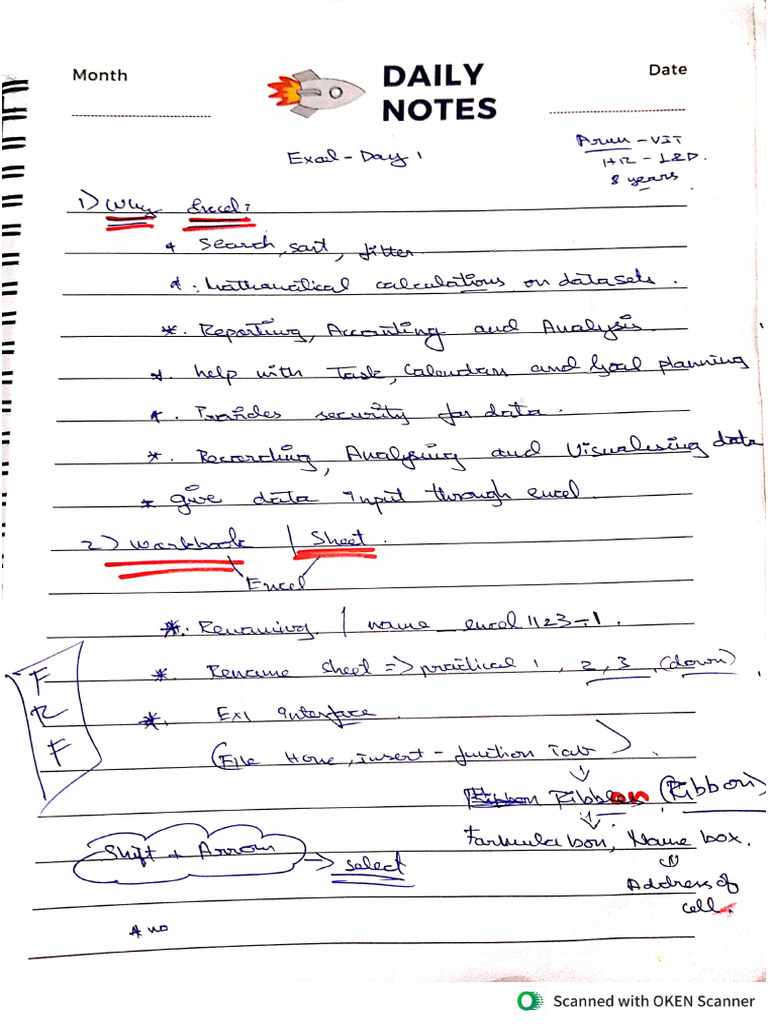 Month
DAILY
NOTES
Date
Excel - Day 1
Arun - VIT
HR - L&D.
8 years
1) Why Excel:
* Search, sort, filter
* . Mathematical calculations on datasets.
* . Reporting, Accounting and Analysis.
* . help with Task, Calendars and Goal planning
* . Provides security for data.
* . Recording, Analysing and Visualising data
* give data input through excel
2) Workbook | Sheet.
Excel
* . Renaming / name excel 1123-1.
* Rename sheet => practical 1, 2, 3 (down)
* . Exl interface
(File Home, insert - function Tab)
F
R
F
Ribbon (Ribbon)
Formula bon, Name box.
Shift + Arrow → select
Address of
cell.
* no
Scanned with OKEN Scanner